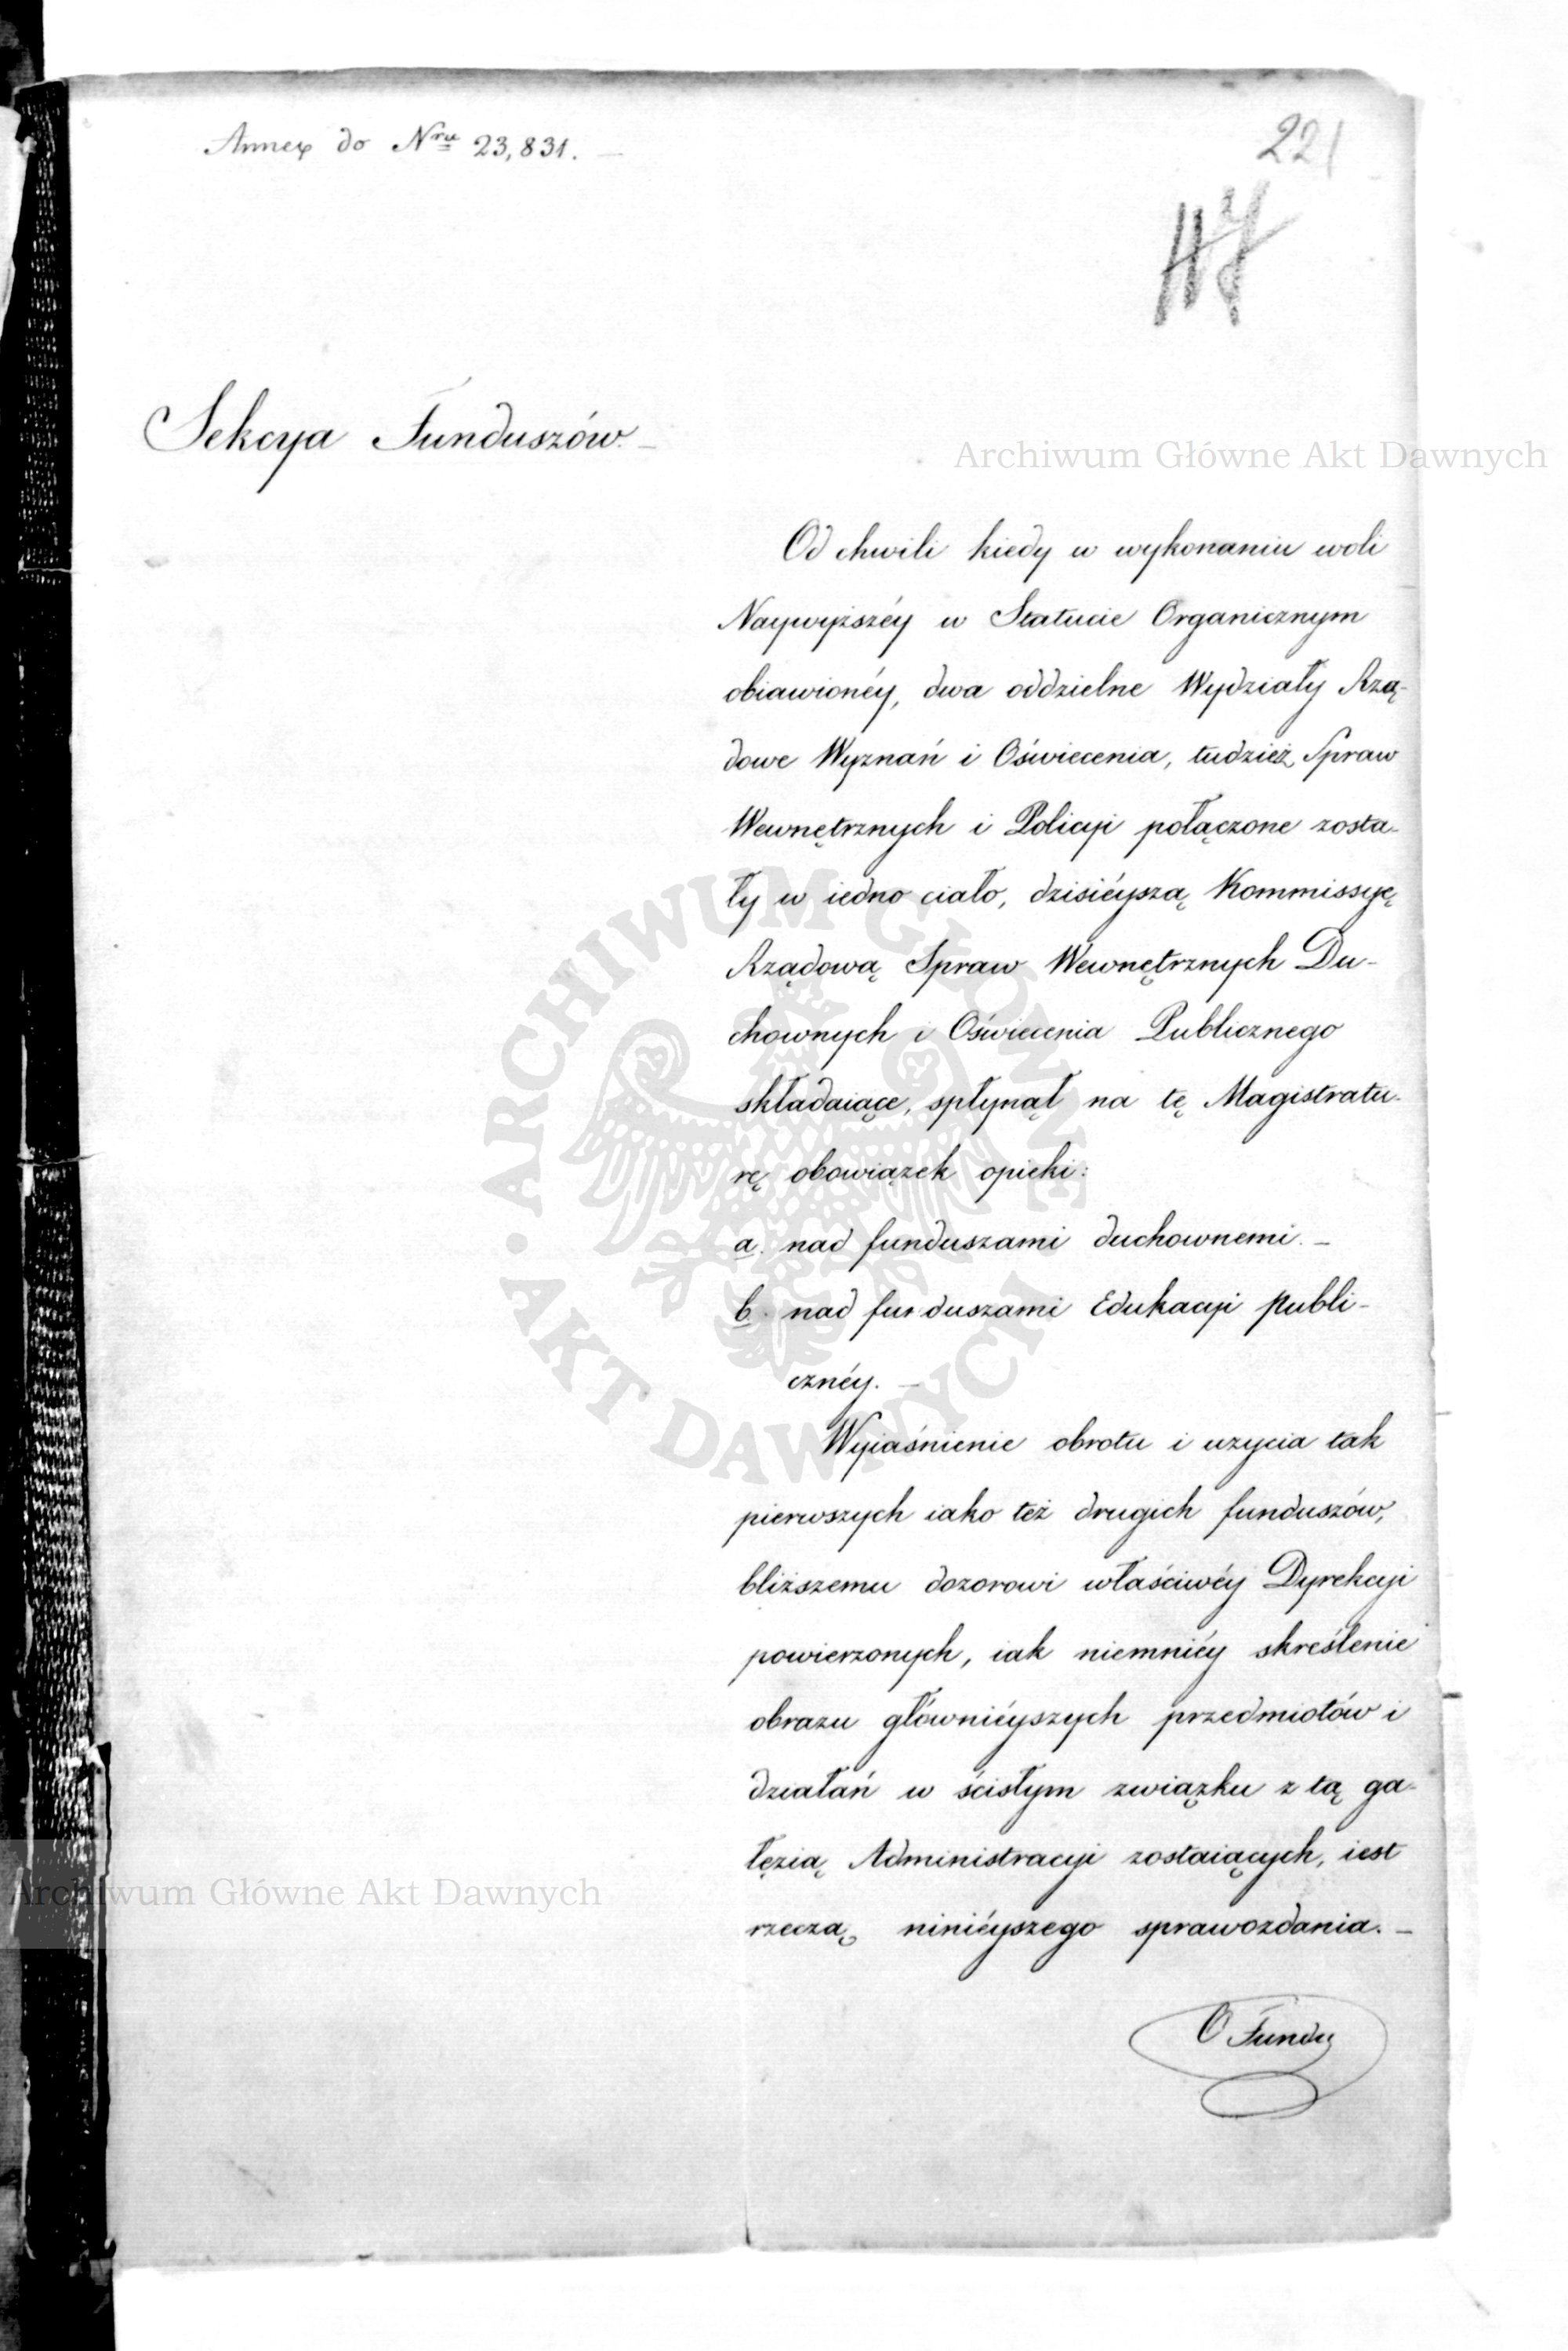 Annex do Nru 23,831. —
221
117
Sekcya Funduszów. —
Archiwum Główne Akt Dawnych
Od chwili kiedy w wykonaniu woli
Naywyższéy w Statucie Organicznym
obiawionéy, dwa oddzielne Wydziały Rzą-
dowe Wyznań i Oświecenia, tudzież Spraw
Wewnętrznych i Policyi połączone zosta-
ły w iedno ciało, dzisiéyszą Kommissyę
Rządową Spraw Wewnętrznych Du-
chownych i Oświecenia Publicznego
składaiące, spłynął na tę Magistratu-
rę obowiązek opieki:
a. nad funduszami duchownemi. —
b. nad funduszami Edukacyi publi-
cznéy. —
Wyiaśnienie obrotu i uzycia tak
pierwszych iako też drugich funduszów,
bliższemu dozorowi właściwéy Dyrekcyi
powierzonych, iak niemniéy skreślenie
obrazu główniéyszych przedmiotów i
działań w ścisłym związku z tą ga-
łęzią Administracyi zostaiących, iest
rzeczą niniéyszego sprawozdania. —
O Fundu
ARCHIWUM GŁÓWNE
AKT DAWNYCH
Archiwum Główne Akt Dawnych